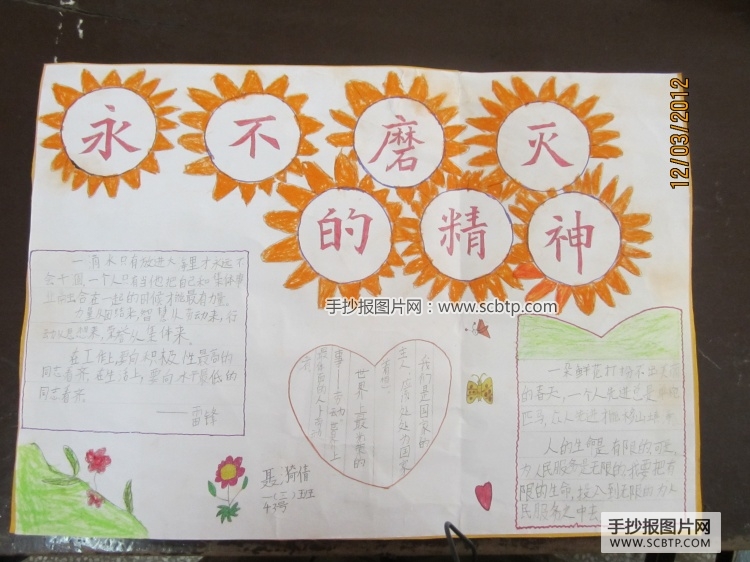 永不磨灭
的精神
12/03/2012
一滴水只有放进大海里才永远不
会干涸,一个人只有当他把自己和集体事
业融合在一起的时候才能最有力量。
力量从团结来,智慧从劳动来,行
动从思想来,荣誉从集体来。
在工作上,要向积极性最高的
同志看齐,在生活上,要向水平最低的
同志看齐。
——雷锋
手抄报图片网:www.scbtp.com
我们是国家的
主人,应该处处为国家
着想
世界上最光荣的
事——劳动
世界上
最体面的人——劳动者
一朵鲜花打扮不出美丽
的春天,一个人先进总是单枪
匹马,众人先进才能移山填海
人的生命是有限的,可是,
为人民服务是无限的,我要把有
限的生命,投入到无限的为人
民服务之中去
聂倚倩
一(二)班
手抄报图片网
WWW.SCBTP.COM